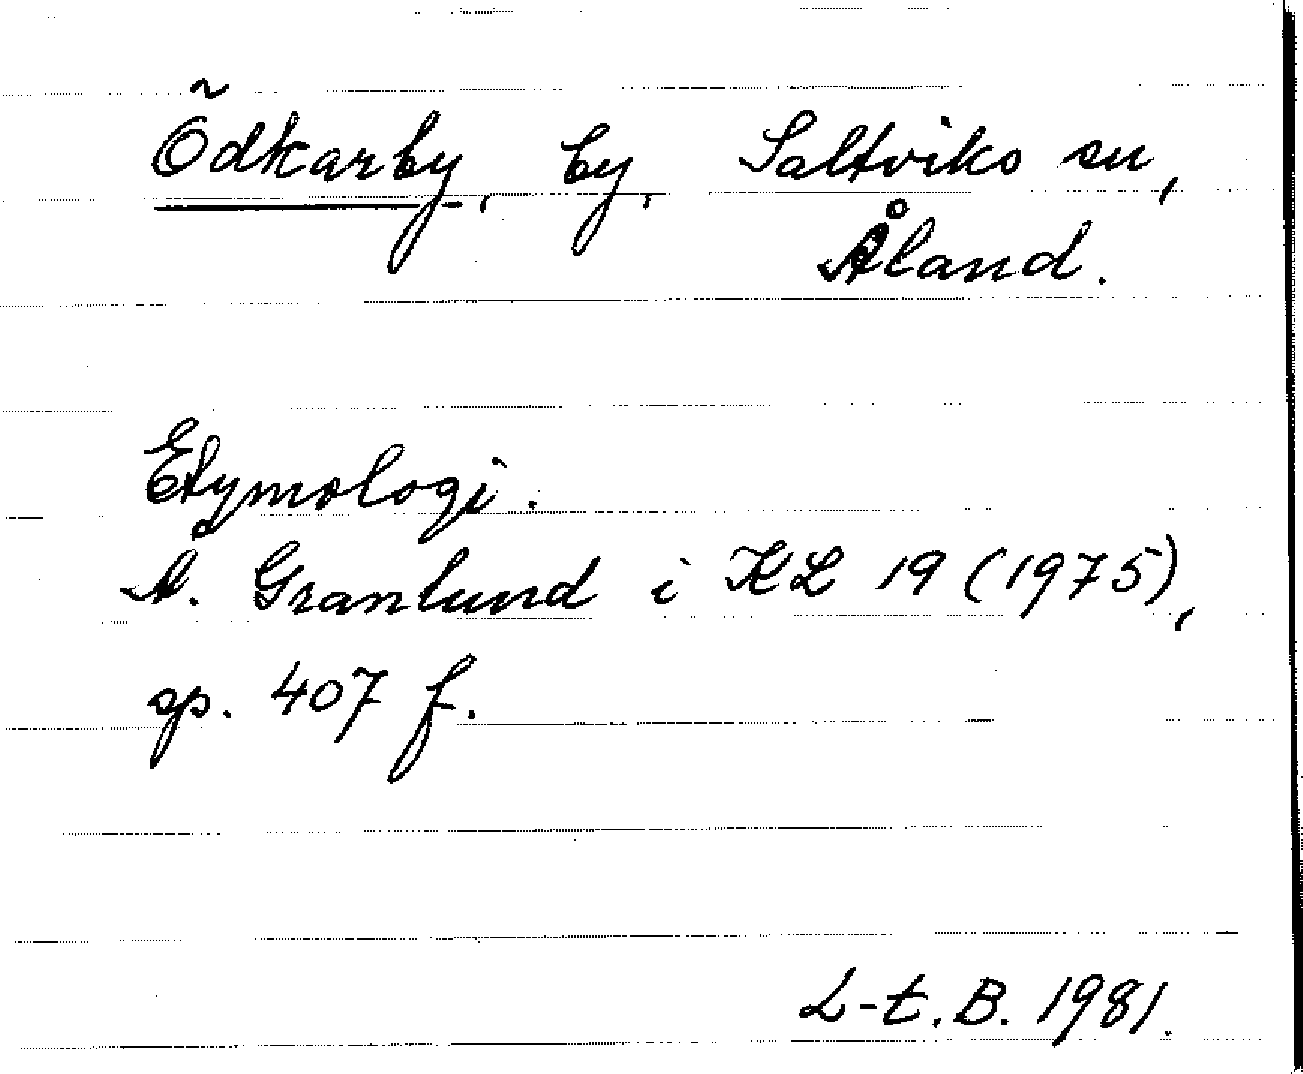 Ödkarby, by, Saltviks sn,
Åland.
Etymologi.
Å. Granlund i KL 19 (1975),
sp. 407 f.
L-t. B. 1981.